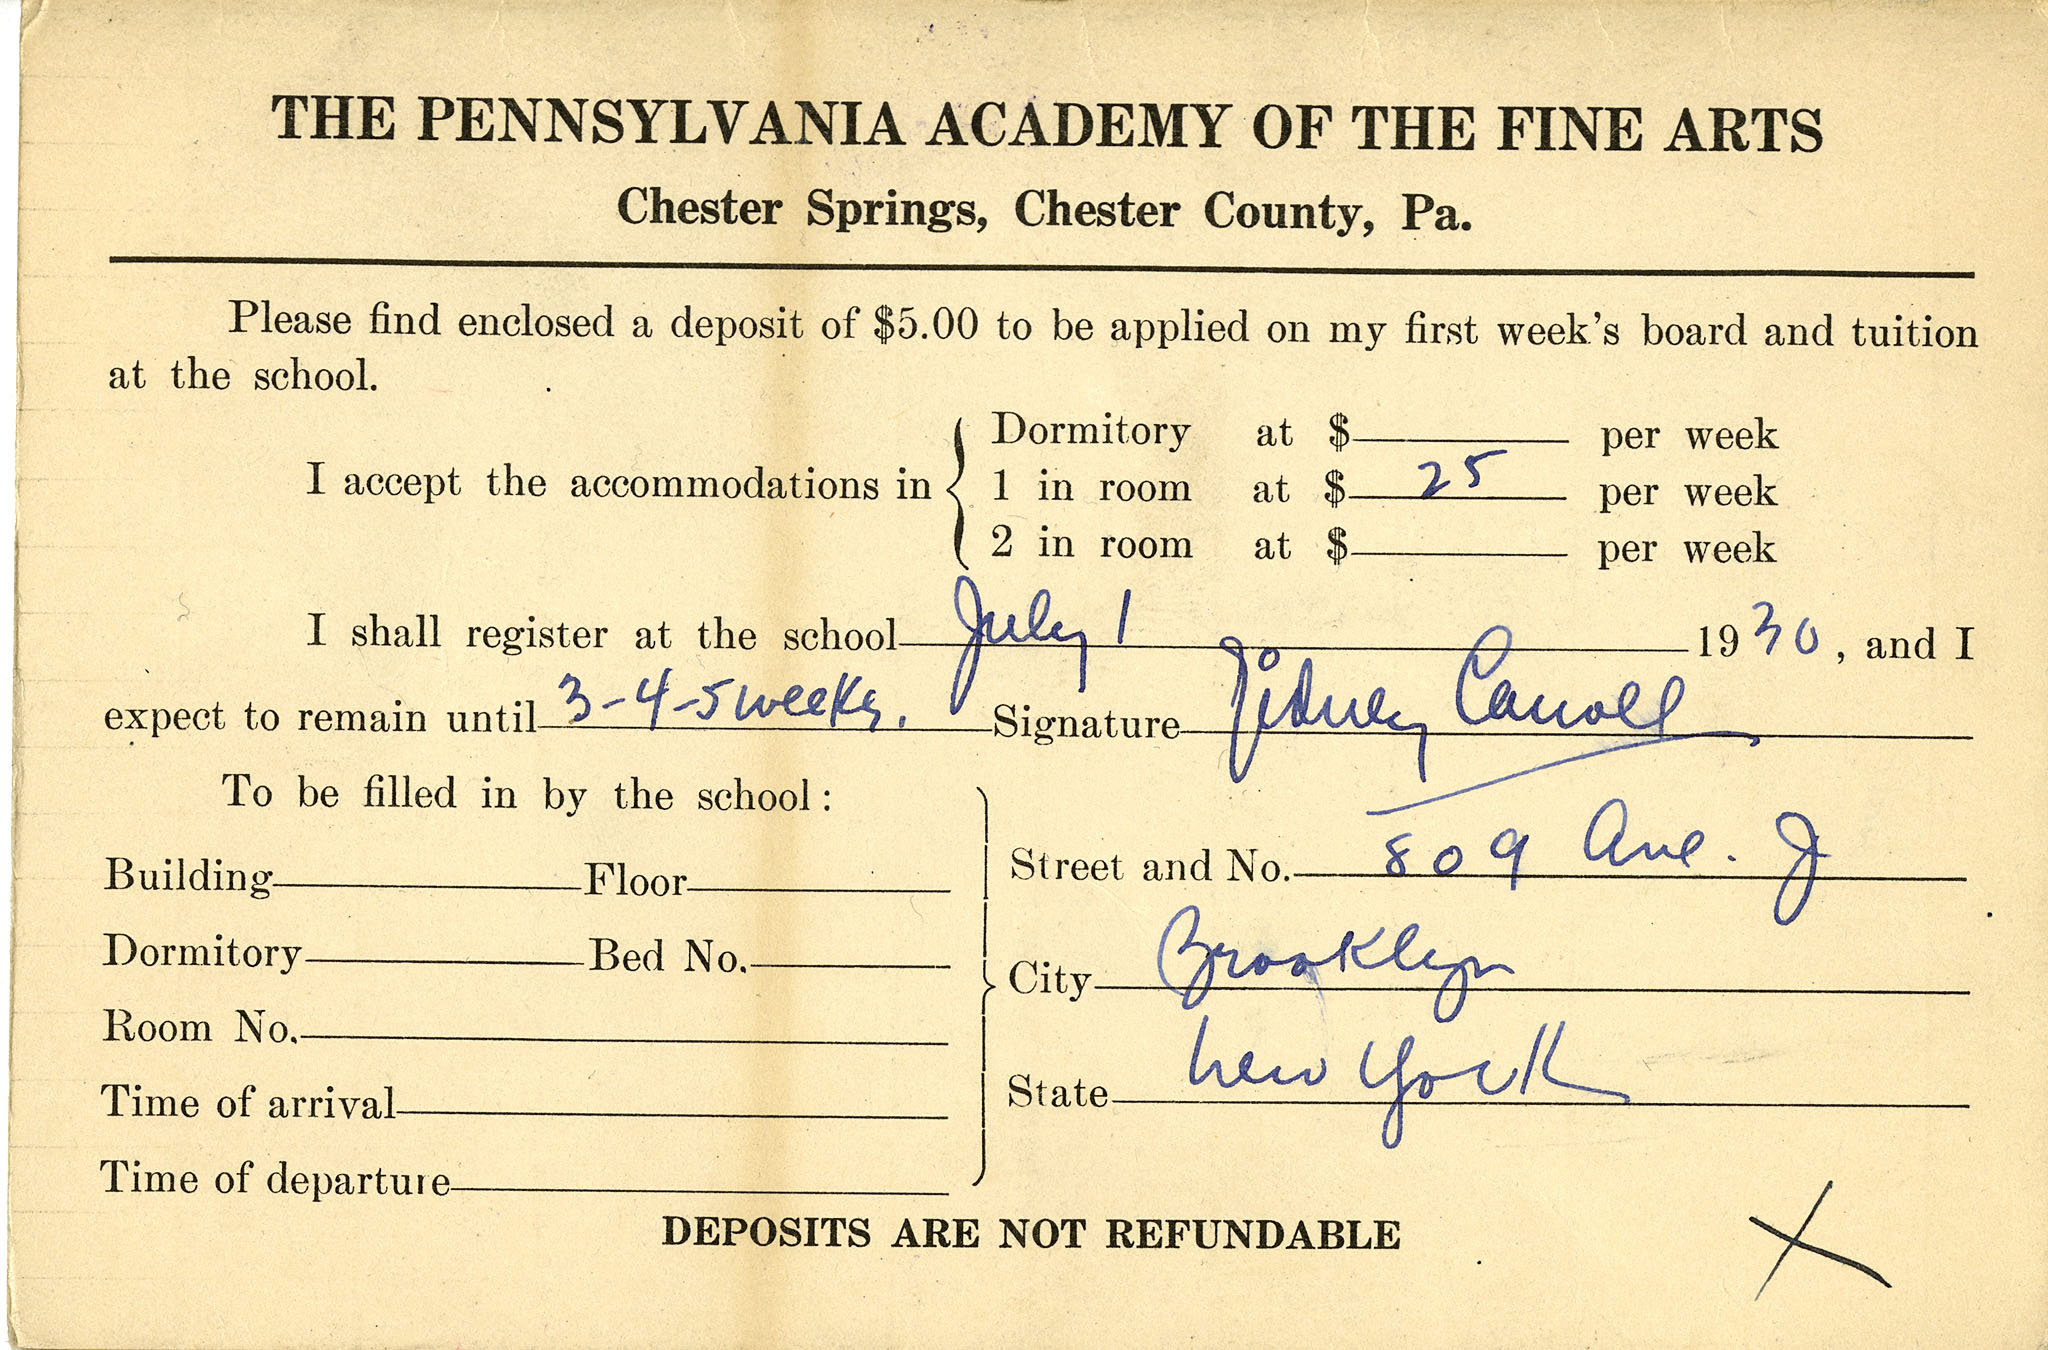 THE PENNSYLVANIA ACADEMY OF THE FINE ARTS
Chester Springs, Chester County, Pa.
Please find enclosed a deposit of $5.00 to be applied on my first week's board and tuition
at the school.
I accept the accommodations in
Dormitory at $ per week
1 in room at $ 25 per week
2 in room at $ per week
I shall register at the school July 1 1930, and I
expect to remain until 3-4-5 weeks. Signature Sidney Carroll
To be filled in by the school:
Building Floor
Dormitory Bed No.
Room No.
Time of arrival
Time of departure
Street and No. 809 Ave. J
City Brooklyn
State New York
DEPOSITS ARE NOT REFUNDABLE
X